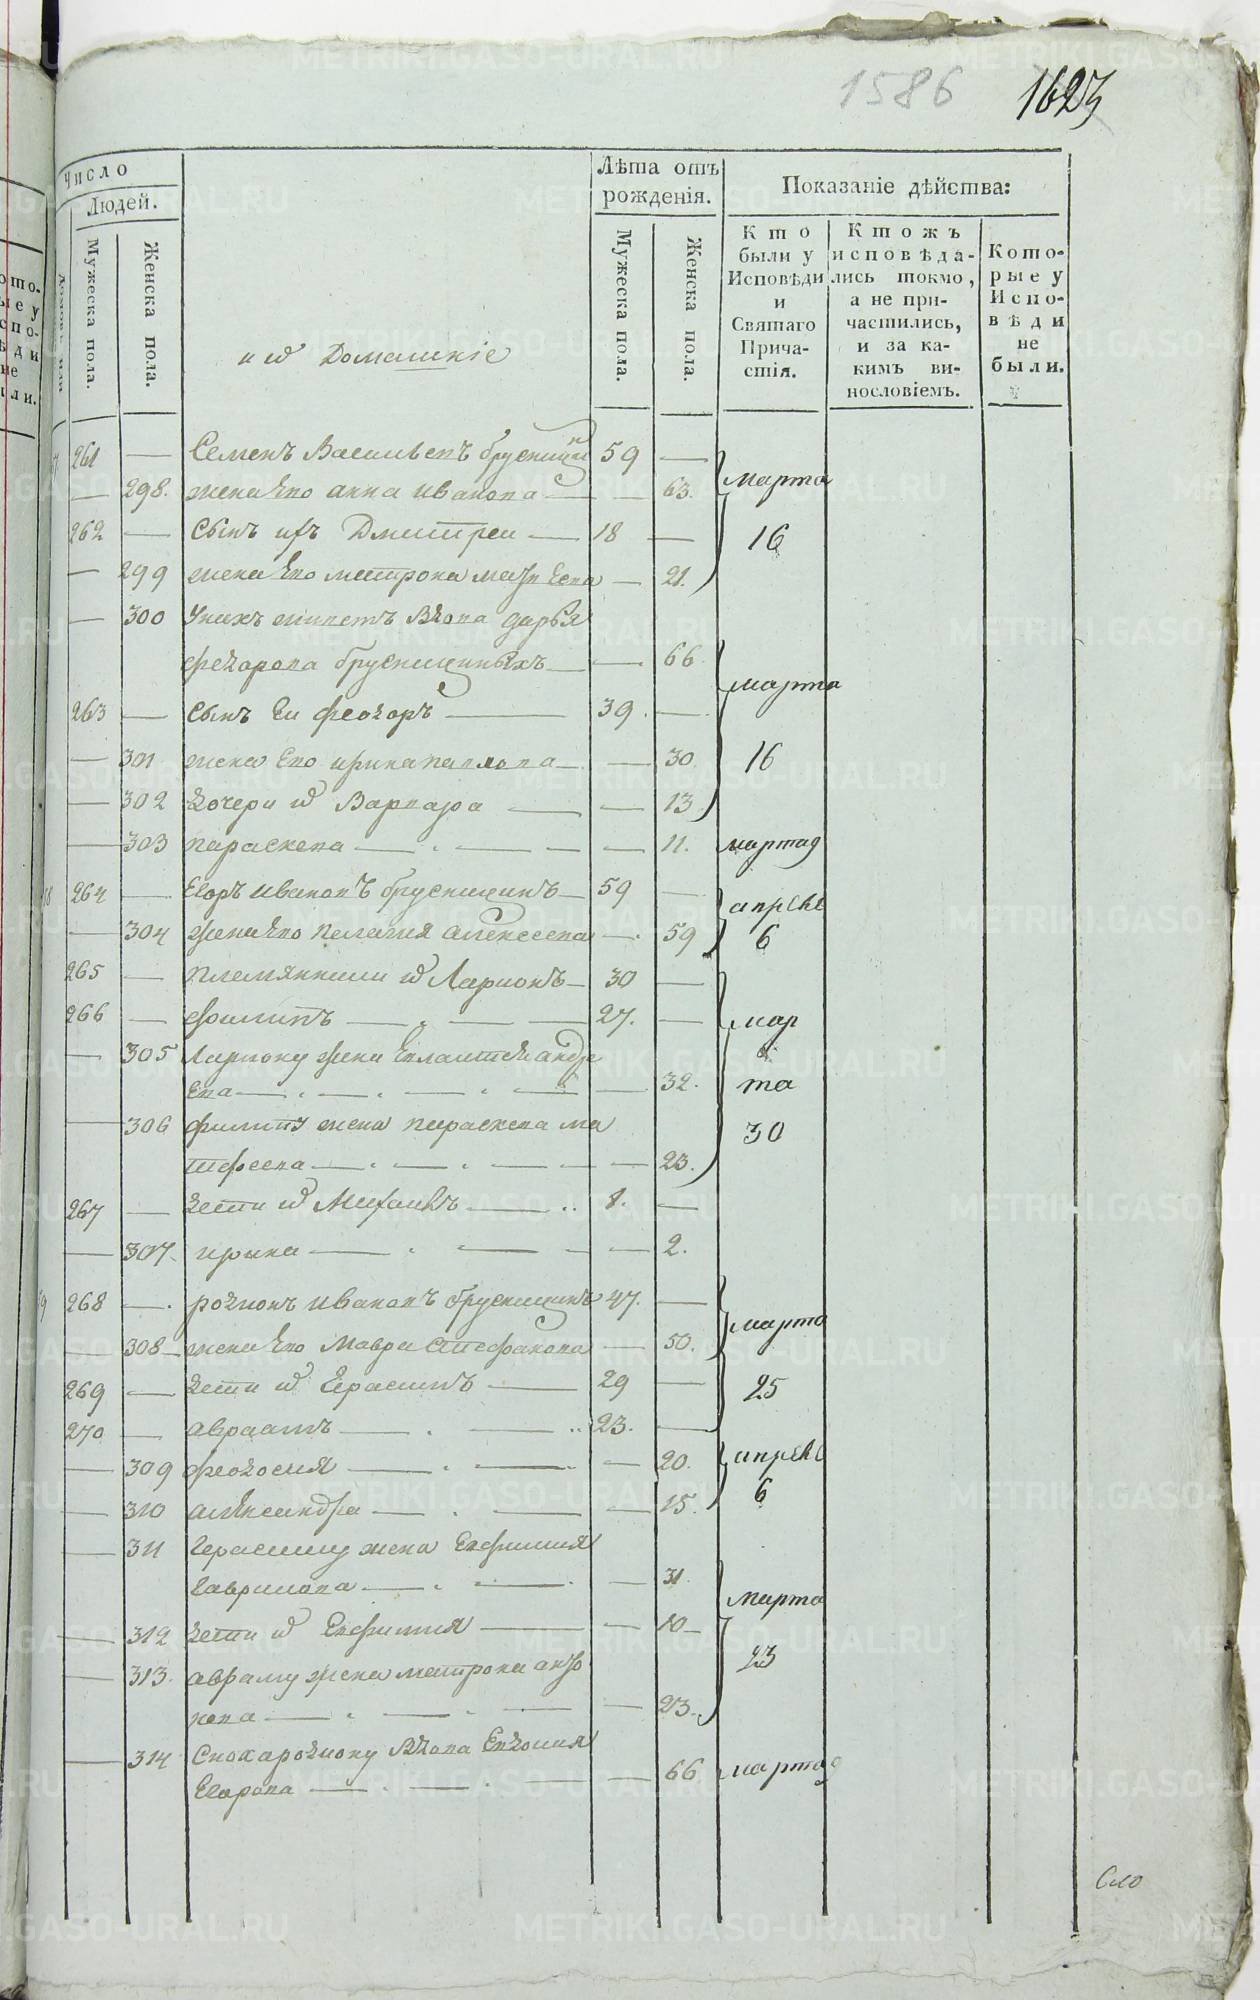 1586 1623
Число
Людей.
Мужеска пола.
Женска пола.
и ѿ Домашнiе
Лѣта отъ рожденiя.
Мужеска пола.
Женска пола.
Показанiе дѣйства:
Кто были у Исповѣди и Святаго Причастiя.
Ктожъ исповѣдались токмо, а не причастились, и за какимъ винословiемъ.
Которые у Исповѣди не были.
261 — Семенъ Васильевъ брусницинъ 59 —
— 298. жена Его анна иванова — — 63. марта
262 — Сынъ ихъ Дмитреи — 18 — 16
— 299 жена Его матрона — 21.
— 300 Унихъ живетъ Вдова дарья
федорова брусницыныхъ — — 66 марта
263 — Сынъ Еи феодоръ — 39. —
— 301 жена Его ирина павлова — — 30 16
— 302 дочери ѿ Варвара — — 13
— 303 параскева — — 11. марта 9
264 — Егоръ ивановъ брусницинъ — 59 — апреля
— 304 жена Его пелагия алексеева — 59 6
265 — племянники ѿ Ларионъ — 30 —
266 — филипъ — 27. — мар
— 305 Лариону жена Евлампея андре
Ева — — 32. та
— 306 филипу жена параскева ма 30
тфеева — — 23.
267 — дети ѿ Михаилъ — 1. —
— 307. ирина — — 2.
268 — родионъ ивановъ брусницинъ 47. — марта
— 308 — жена Его Мавра Стефанова — 50.
269 — дети ѿ Герасимъ — 29 — 25
270 — авраамъ — 23. —
— 309 феодосия — — 20. апреля
— 310 александра — — 15. 6
— 311 Герасиму жена Евфимия
Гаврилова — — 31 марта
— 312 дети ѿ Евфимия — — 10 —
— 313. авраму жена матрона анфо 23
нова — — 23.
— 314 Сноха родиону Вдова Евдокия
Егорова — — 66 марта 9
Сло